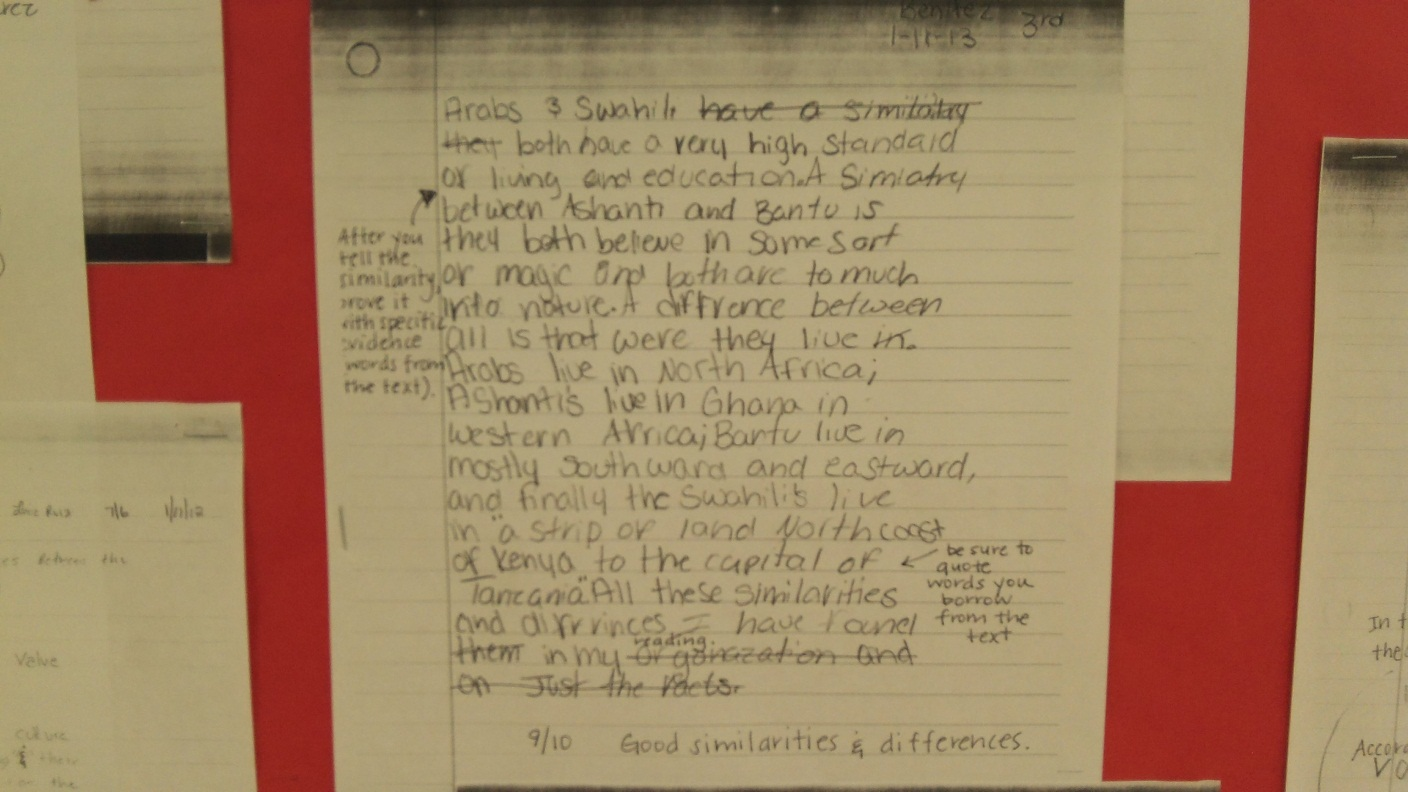 Benitez
1-11-13 3rd
Arabs & Swahili have a similarity
their both have a very high standard
of living and education. A Simiatry
between Ashanti and Bantu is
they both believe in some sort
of magic and both are to much
into nature. A diffrence between
all is that were they live in.
Arabs live in North Africa;
AShanti's live in Ghana in
western Africa; Bantu live in
mostly southward and eastward,
and finally the Swahili's live
in "a strip of land North coast
of Kenya to the capital of
Tanzania". All these similarities
and diffrinces I have found
reading.
them in my organazation and
on Just the facts.
After you
tell the
similarity,
prove it
with specific
evidence
words from
the text).
be sure to
quote
words you
borrow
from the
text
9/10 Good similarities & differences.
7/6 1/11/12
Value
culture
the
In t
the
Accord